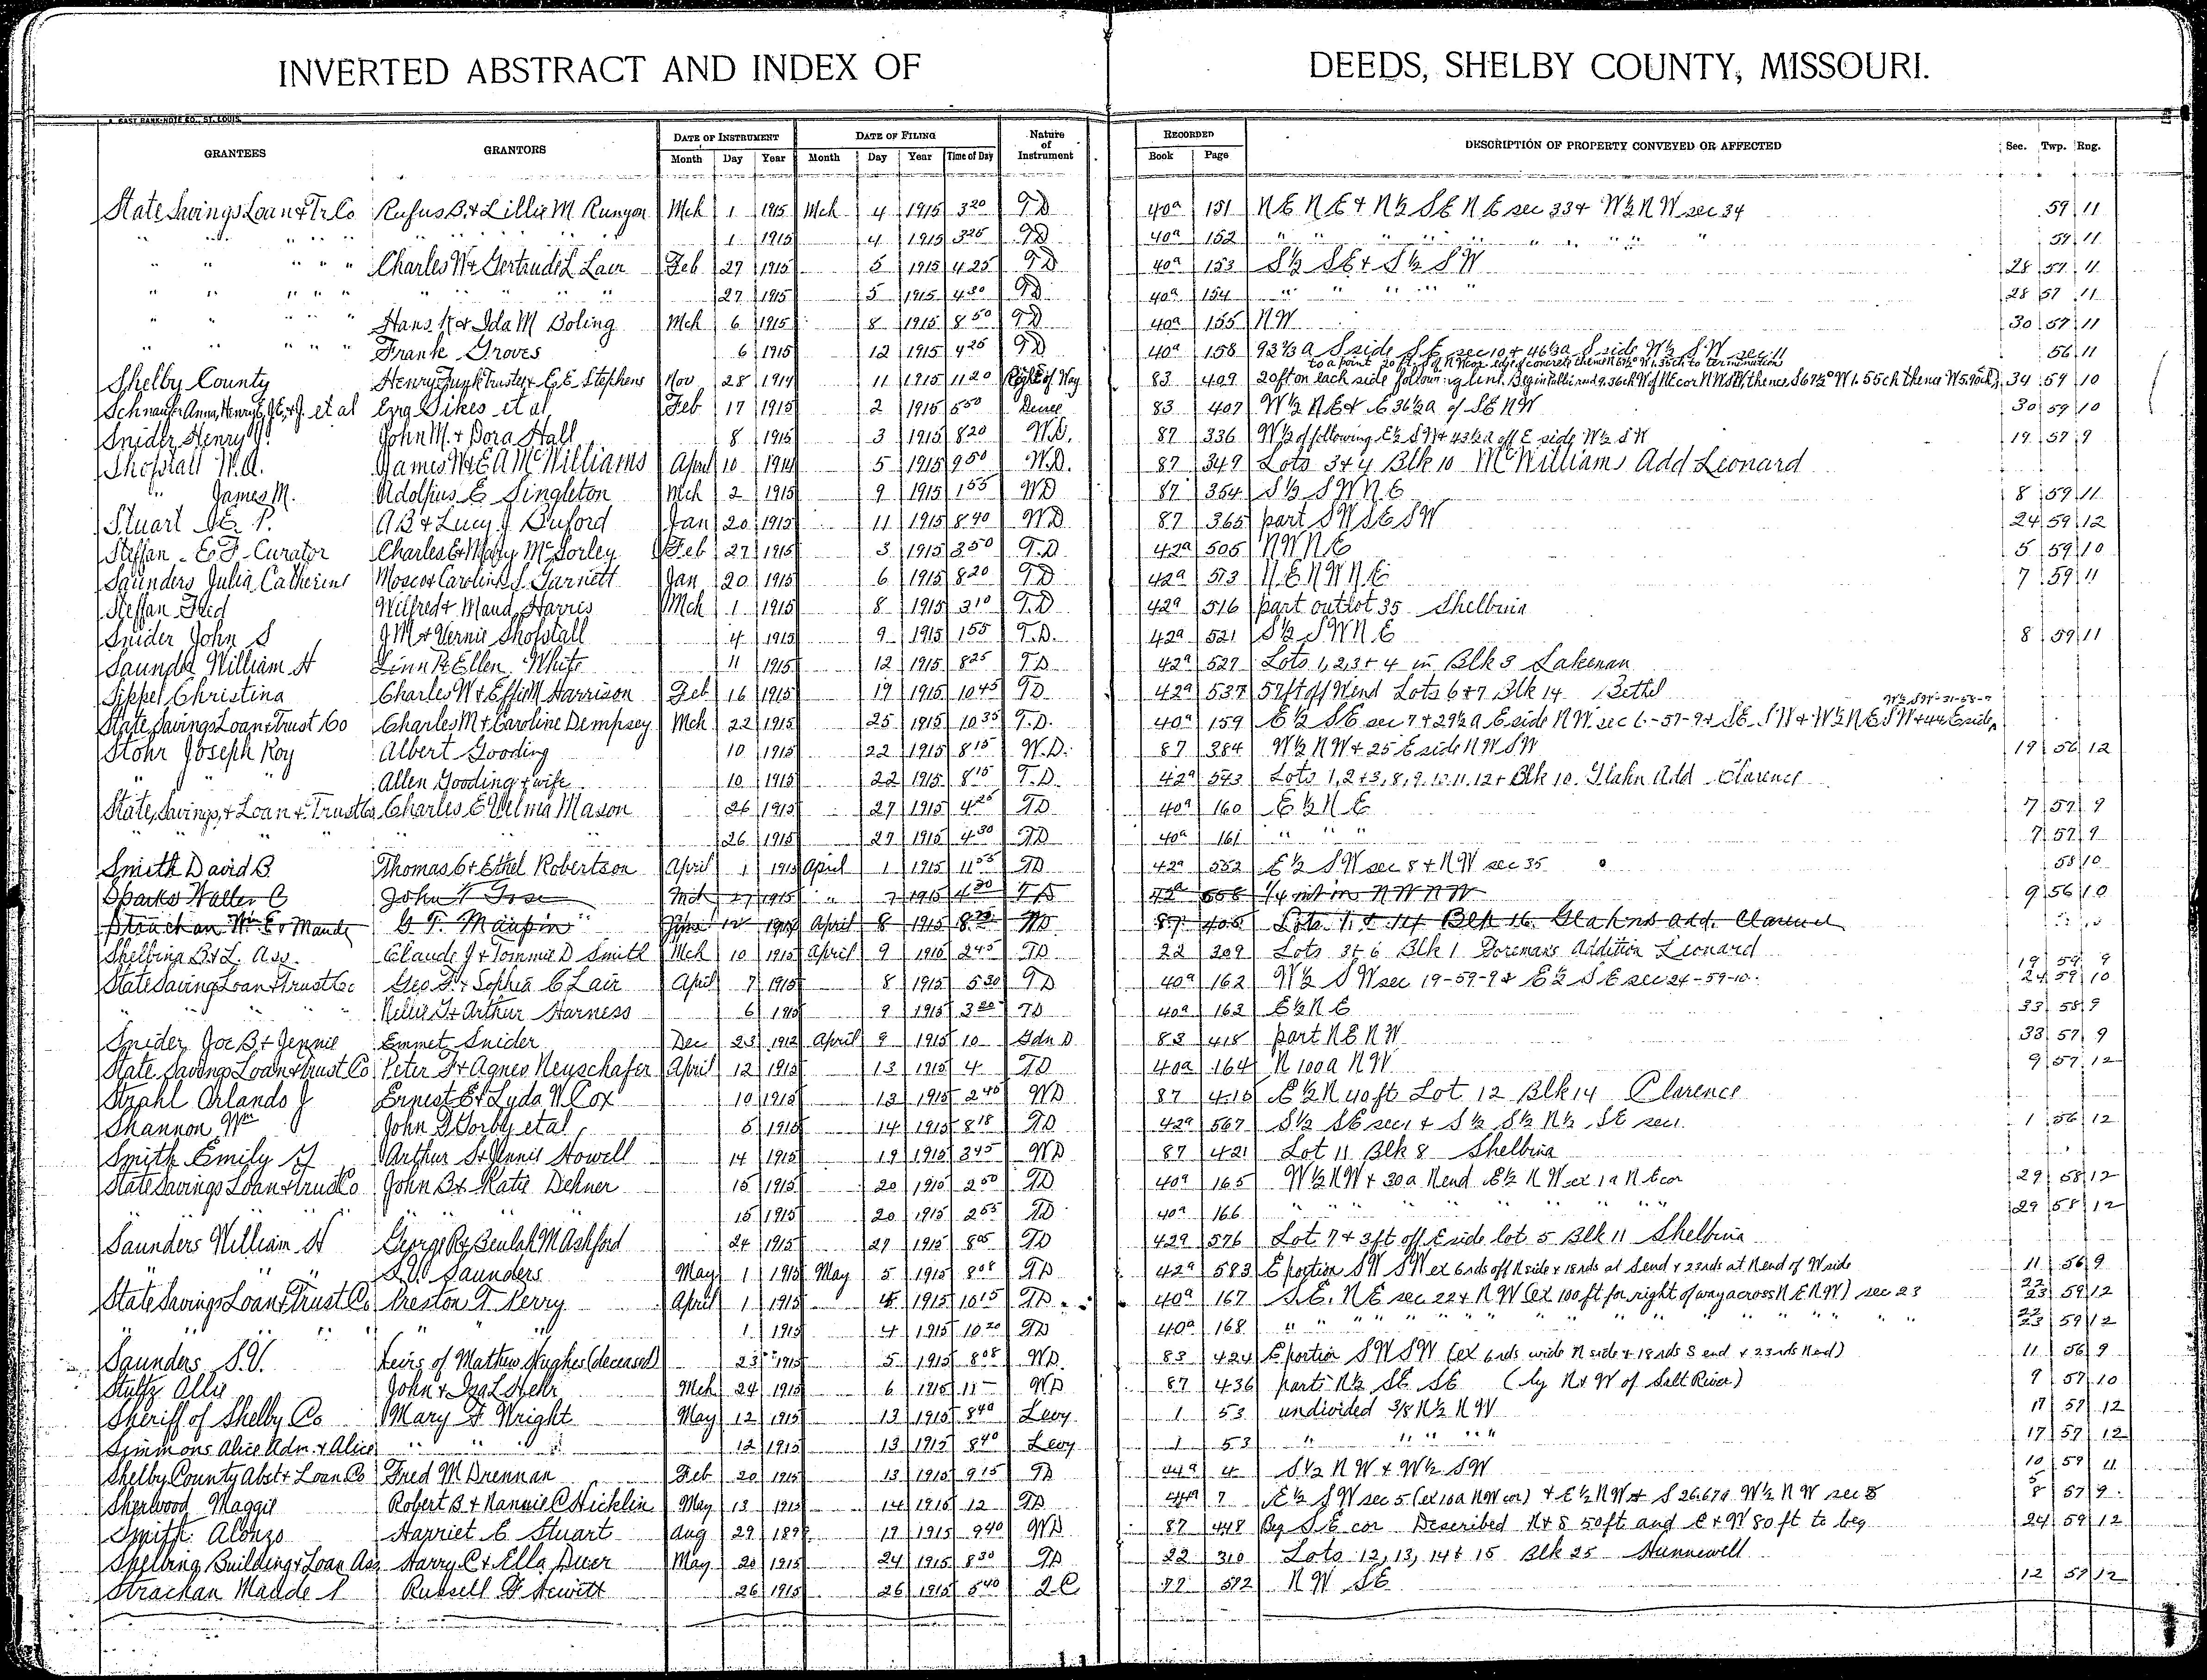 INVERTED ABSTRACT AND INDEX OF DEEDS, SHELBY COUNTY, MISSOURI.
GRANTEES GRANTORS DATE OF INSTRUMENT DATE OF FILING Nature of Instrument RECORDED DESCRIPTION OF PROPERTY CONVEYED OR AFFECTED Sec. Twp. Rng.
Month Day Year Month Day Year Time of Day Book Page
State Savings Loan & Tr Co Rufus B. & Lillie M Runyon Mch 1 1915 Mch 4 1915 3 20 TD 40a 151 NE NE & N½ SE NE sec 33 & W½ NW sec 34 59 11
" " " " " 1 1915 4 1915 3 25 TD 40a 152 " " " " " " " " 59 11
" " " " " Charles W & Gertrude L Lair Feb 27 1915 5 1915 4 25 TD 40a 153 S½ SE & S½ SW 28 57 11
" " " " " " " " " 27 1915 5 1915 4 30 TD 40a 154 " " " " " 28 57 11
" " " " " Hans K & Ida M Boling Mch 6 1915 8 1915 8 50 TD 40a 155 NW 30 57 11
" " " " " Frank Groves 6 1915 12 1915 4 25 TD 40a 158 92⅓ a S side SE sec 10 & 46⅓ a S side W½ SW sec 11 56 11
Shelby County Henry Funk Trustee & C E Stephens Nov 28 1914 11 1915 11 20 Right of Way 83 409 20 ft on each side following line 34 59 10
Schnaufer Anna, Henry et al Ezra Sikes et al Feb 17 1915 2 1915 5 50 Decree 83 407 W½ NE & E 36½ a of SE NW 30 59 10
Snider Henry J. John M. & Dora Hall 8 1915 3 1915 8 20 W.D. 87 336 W½ of following E½ SW & 43½ a off E side W½ SW 19 57 9
Shofstall W.A. James W & E A McWilliams April 10 1914 5 1915 9 50 W.D. 87 349 Lots 3 & 4 Blk 10 McWilliams Add Leonard
" James M. Adolfius E Singleton Mch 2 1915 9 1915 1 55 WD 87 354 S½ SW NE 8 59 11
Stuart J.E. P. A B & Lucy J Buford Jan 20 1915 11 1915 8 40 WD 87 365 part SW SE SW 24 59 12
Steffan E F Curator Charles E & Mary McSorley Feb 27 1915 3 1915 3 50 T.D 42a 505 NW NE 5 59 10
Saunders Julia Catherine Mosco & Caroline S. Garnett Jan 20 1915 6 1915 8 20 TD 42a 513 NE NW NE 7 59 11
Steffan Fred Wilfred & Maud Harris Mch 1 1915 8 1915 3 10 T.D 42a 516 part outlot 35 Shelbina
Snider John S J M & Vernie Shofstall 4 1915 9 1915 1 55 T.D. 42a 521 S½ SW NE 8 59 11
Saunders William H Linn & Ellen White 11 1915 12 1915 8 25 TD 42a 527 Lots 1, 2, 3 & 4 in Blk 3 Lakenan
Sippel Christina Charles W & Effie M Harrison Feb 16 1915 19 1915 10 45 TD 42a 537 57 ft off W end Lots 6 & 7 Blk 14 Bethel
State Savings Loan & Trust Co Charles M & Caroline Dempsey Mch 22 1915 25 1915 10 35 T.D. 40a 159 E½ SE sec 7 & 29½ a E side NW sec 6-57-9 & SE SW & W½ NE SW & 44 E side W½ SW-31-58-9
Stohr Joseph Roy Albert Gooding 10 1915 22 1915 8 15 W.D. 87 384 W½ NW & 25 E side NW SW 19 56 12
" " Allen Gooding & wife 10 1915 22 1915 8 15 T.D. 42a 543 Lots 1, 2 & 3, 8, 9, 10, 11, 12 & Blk 10. Glahn Add Clarence
State Savings & Loan & Trust Co Charles E Velma Mason 26 1915 27 1915 4 25 TD 40a 160 E½ NE 7 57 9
" " " " 26 1915 27 1915 4 30 TD 40a 161 " " " 7 57 9
Smith David B Thomas C & Ethel Robertson April 1 1915 April 1 1915 11 55 TD 42a 552 E½ SW sec 8 & NW sec 35 58 10
Sparks Walter C John T Mch 27 1915 " 7 1915 4 30 TD 42a 558 ¼ int in NW NW 9 56 10
Strachan Wm E & Maude G T. Maupin April 8 WD 87 405 Lots 1 & 14 Blk 16 Glahns add. Clarence
Shelbina B & L. Ass. Claude J & Tommie D Smith Mch 10 1915 April 9 1915 2 45 TD 22 309 Lots 3 & 6 Blk 1 Foremans Addition Leonard
State Savings Loan & Trust Co Geo F. & Sophia C Lair April 7 1915 8 1915 5 30 TD 40a 162 W½ SW sec 19-59-9 & E½ SE sec 24-59-10 19 59 9 24 59 10
" " Nellie G & Arthur Harness 6 1915 9 1915 3 20 TD 40a 163 E½ NE 33 58 9
Snider Joe B & Jennie Emmet Snider Dec 23 1912 April 9 1915 10 Gdn D 83 418 part NE NW 33 57 9
State Savings Loan & Trust Co Peter F & Agnes Neuschafer April 12 1915 13 1915 4 TD 40a 164 N 100 a NW 9 57 12
Strahl Orlando J Ernest E & Lyda W Cox 10 1915 13 1915 2 40 WD 87 415 E½ N 40 ft Lot 12 Blk 14 Clarence
Shannon Wm John D Gorby et al 5 1915 14 1915 8 18 TD 42a 567 S½ SE sec 1 & S½ S½ N½ SE sec 1 1 56 12
Smith Emily Arthur S & Jennie Howell 14 1915 19 1915 3 45 WD 87 421 Lot 11 Blk 8 Shelbina
State Savings Loan & Trust Co John B & Katie Dehner 15 1915 20 1915 2 50 TD 40a 165 W½ NW & 30 a N end E½ NW ex 1 a NE cor 29 58 12
" " " " 15 1915 20 1915 2 55 TD 40a 166 " " " " " " " " 29 58 12
Saunders William H George R & Beulah M Ashford 24 1915 27 1915 8 05 TD 42a 576 Lot 7 & 3 ft off E side lot 5 Blk 11 Shelbina
" " " S.V. Saunders May 1 1915 May 5 1915 8 08 TD 42a 583 E portion SW SW ex 6 rds off N side & 18 rds at S end & 23 rds at N end of W side 11 56 9
State Savings Loan & Trust Co Preston T Perry April 1 1915 4 1915 10 15 TD 40a 167 SE. NE sec 22 & NW (ex 100 ft for right of way across NE NW) sec 23 22 23 59 12
" " " " " " 1 1915 4 1915 10 20 TD 40a 168 " " " " " " " " " " 22 23 59 12
Saunders S.V. Heirs of Mathew Hughes (deceased) 23 1915 5 1915 8 08 WD. 83 424 E portion SW SW (ex 6 rds wide N side & 18 rds S end & 23 rds N end) 11 56 9
Stultz Allie John & Iza L Stehr Mch 24 1915 6 1915 11 — WD 87 436 part N½ SE SE (ly N & W of Salt River) 9 57 10
Sheriff of Shelby Co Mary F Wright May 12 1915 13 1915 8 40 Levy 1 53 undivided 3/8 N½ NW 17 57 12
Simmons Alice Adm. & Alice " " " 12 1915 13 1915 8 40 Levy 1 53 " " " " " 17 57 12
Shelby County Abst & Loan Co Fred M Drennan Feb 20 1915 13 1915 9 15 TD 44a 4 S½ NW & W½ SW 10 59 11
Sherwood Maggie Robert B & Nannie C Hicklin May 13 1915 14 1915 12 TD 44a 7 E½ SW sec 5 (ex 10 a NW cor) & E½ NW & S 26.67 a W½ NW sec 8 5 8 57 9
Smith Alonzo Harriet E Stuart Aug 29 189 19 1915 9 40 WD 87 448 Beg SE cor Described N & S 50 ft and E & W 80 ft to beg 24 59 12
Shelbina Building & Loan Ass Harry C & Ella Duer May 20 1915 24 1915 8 30 TD 22 310 Lots 12, 13, 14 & 15 Blk 25 Hunnewell
Strachan Maude P Russell F Hewitt 26 1915 26 1915 5 40 QC 77 592 NW SE 12 57 12